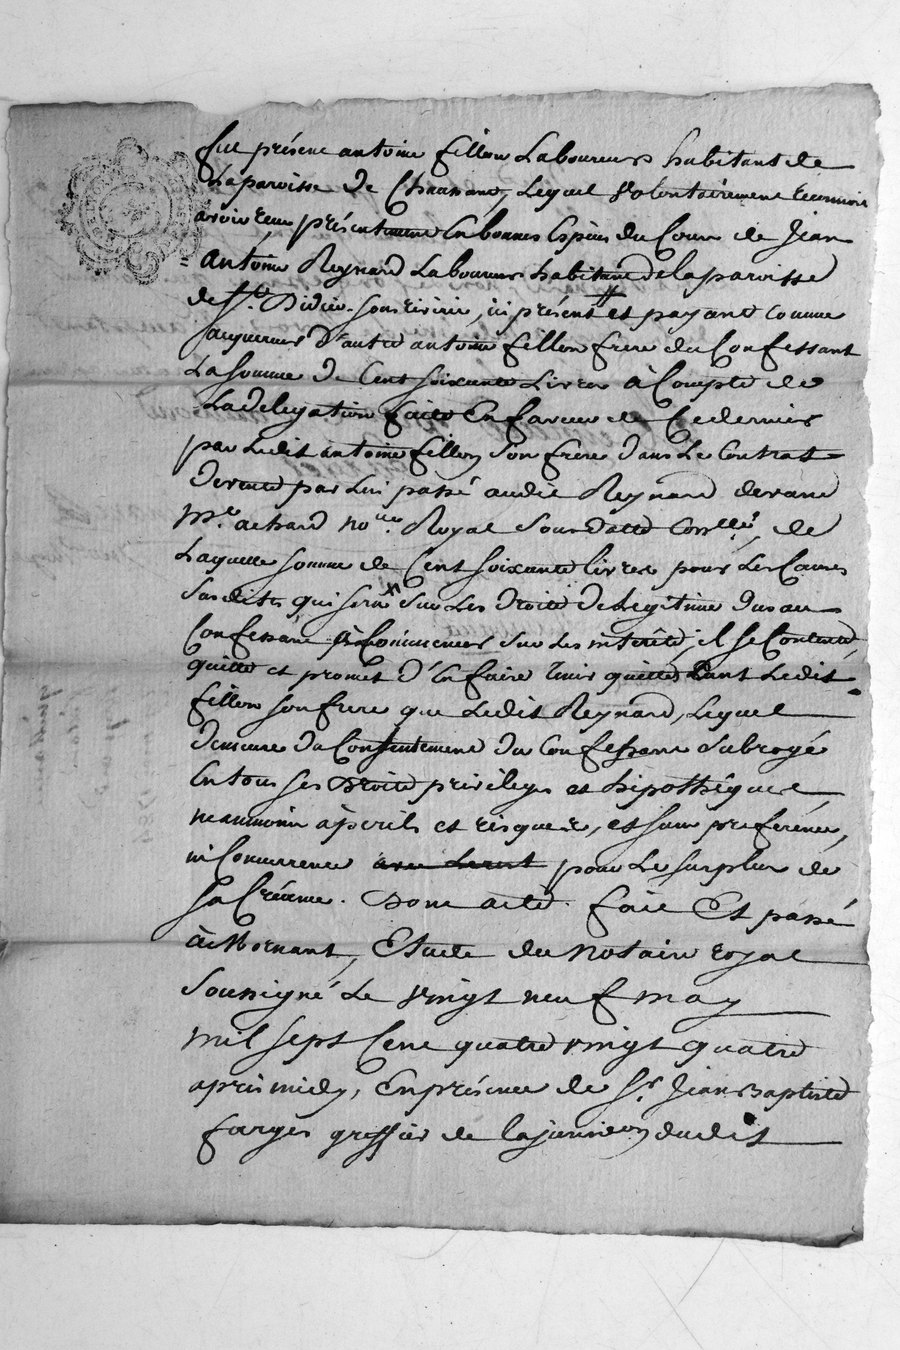 fut présent antoine fillon Laboureur habitant de
La paroisse de Chaussant, Lequel volontairement reconnoit
avoir reçu présentement en bonnes espèces du Cours de Jean
= Antoine Reynard Laboureur habitant de la paroisse
de St. Didier sous riverie, ici présent et payant comme
acquereur d'autre antoine fillon frere du Confessant
La somme de Cent soixante Livres à Compte de
La delegation faite en faveur de Ce dernier
par Ledit antoine fillon son frere dans Le Contrat
de vente par Lui passé audit Reynard devant
Me. achard nore. Royal sous datte de
Laquelle somme de Cent soixante livres pour Les Causes
susdites qui sur Les droits de Legitime dus au
Confessant à Commencer sur Les intérêts, il se Contente,
quitte et promet d'en faire tenir quittes tant Ledit
fillon son frere que Ledit Reynard, Lequel
demeure du Consentement du Confessant subrogé
en tous ses droits privileges et hipothèques,
neanmoins à perils et risques, et sans preference,
ni Concurrence pour Le surplus de
sa Créance. Dont acte. fait Et passé
à Mornant, Etude du Notaire royal
soussigné Le vingt neuf may
mil sept Cent quatre vingt quatre
après midy, En présence de Sr. Jean Baptiste
farges greffier de la jurisdon dudit